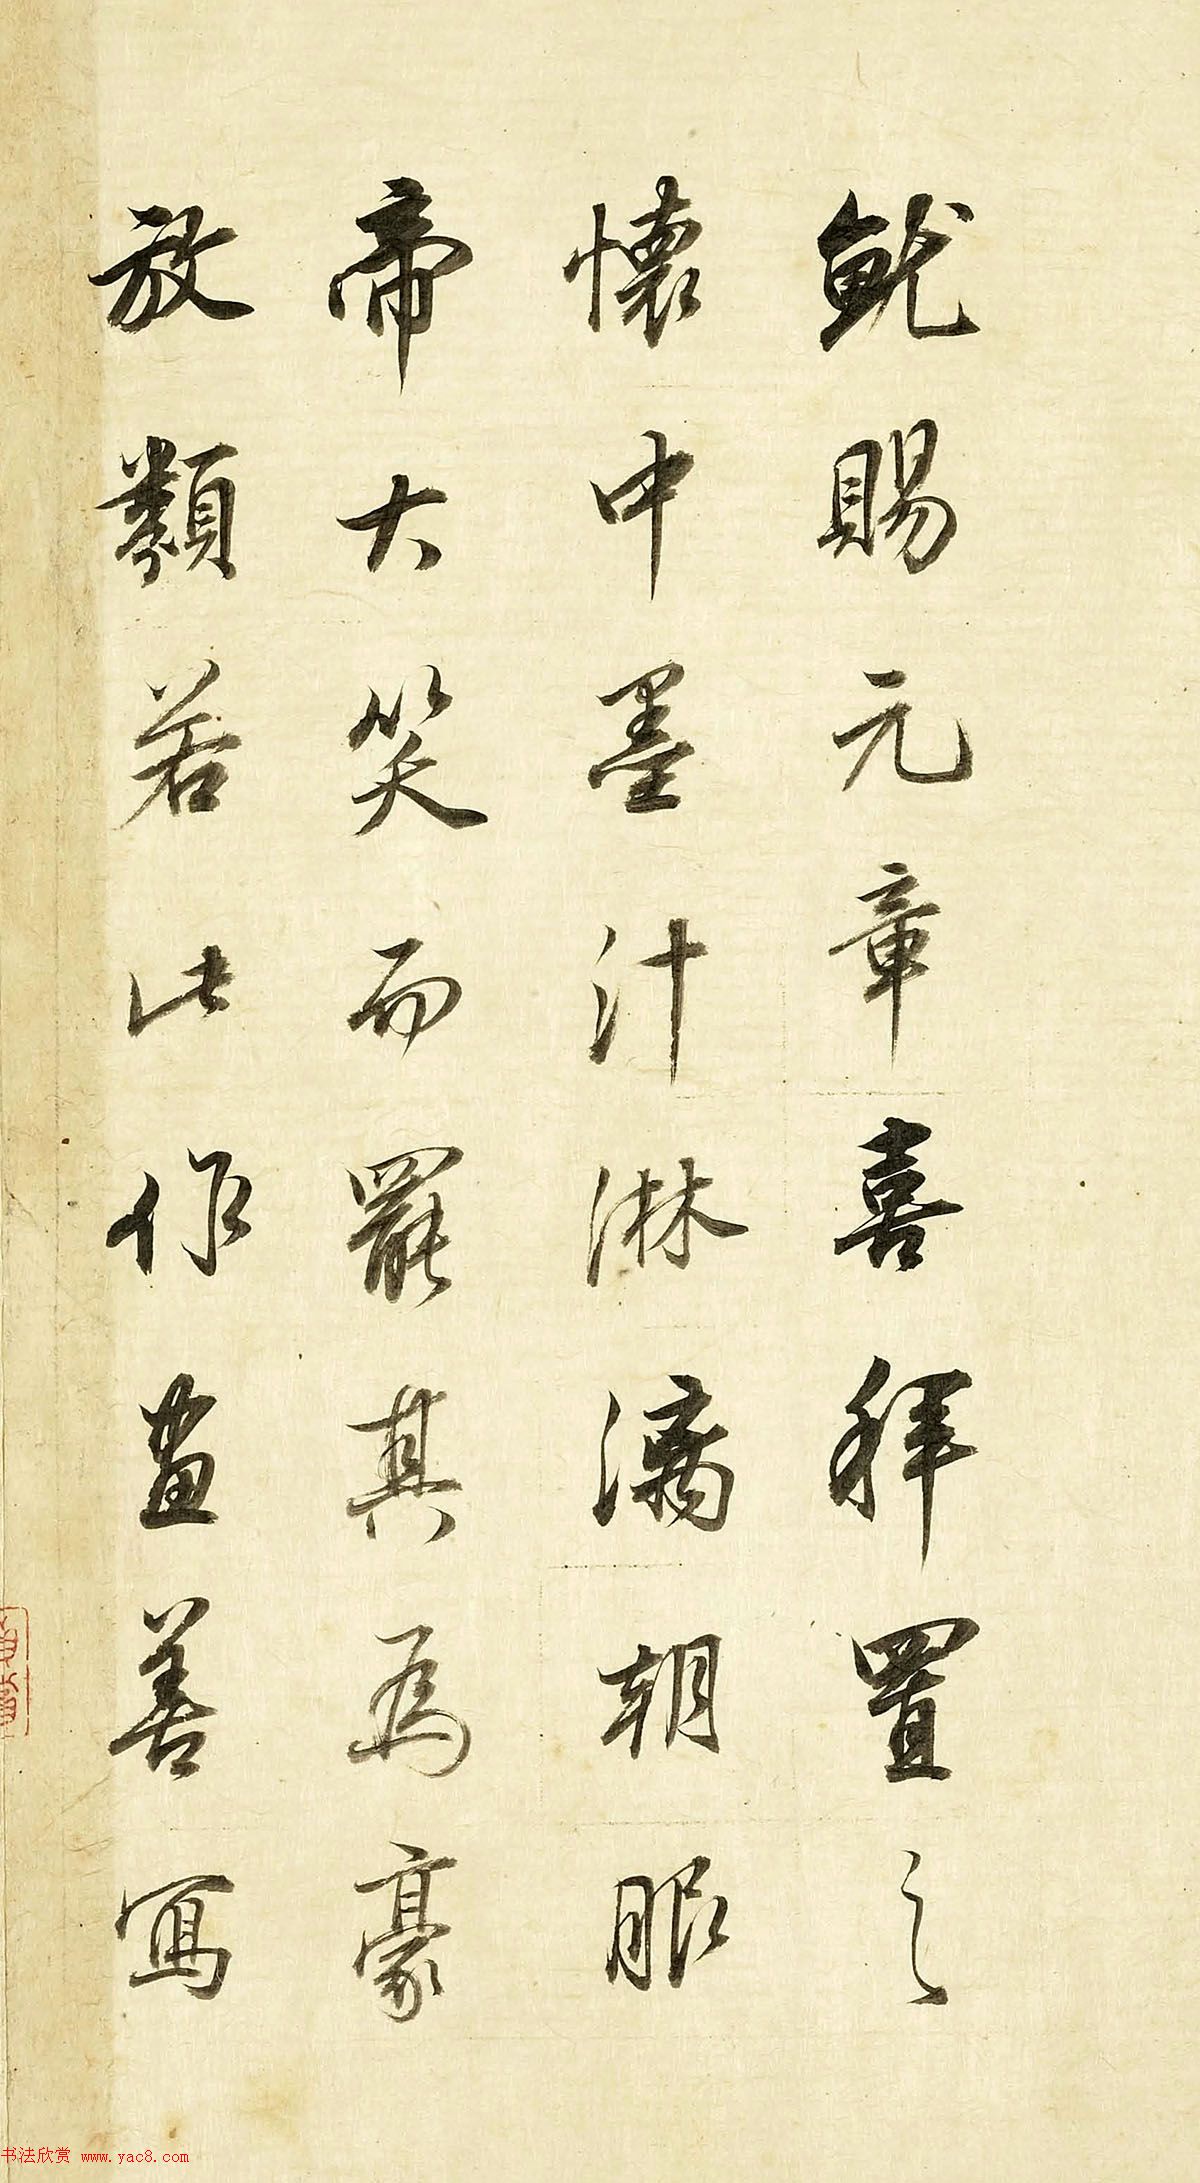 就賜元章喜拜置之
懷中墨汁淋漓朝服
帝大笑而罷其為豪
放類若此作畫善寫
书法欣赏 www.yac8.com